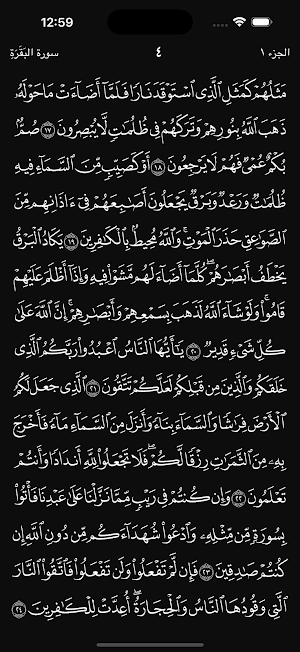 12:59
الجزء ١
٤
سورة البَقَرَةِ
مَثَلُهُمْ كَمَثَلِ ٱلَّذِى ٱسْتَوْقَدَ نَارًا فَلَمَّآ أَضَآءَتْ مَا حَوْلَهُۥ
ذَهَبَ ٱللَّهُ بِنُورِهِمْ وَتَرَكَهُمْ فِى ظُلُمَٰتٍ لَّا يُبْصِرُونَ ١٧ صُمٌّۢ
بُكْمٌ عُمْىٌ فَهُمْ لَا يَرْجِعُونَ ١٨ أَوْ كَصَيِّبٍ مِّنَ ٱلسَّمَآءِ فِيهِ
ظُلُمَٰتٌ وَرَعْدٌ وَبَرْقٌ يَجْعَلُونَ أَصَٰبِعَهُمْ فِىٓ ءَاذَانِهِم مِّنَ
ٱلصَّوَٰعِقِ حَذَرَ ٱلْمَوْتِ ۚ وَٱللَّهُ مُحِيطٌۢ بِٱلْكَٰفِرِينَ ١٩ يَكَادُ ٱلْبَرْقُ
يَخْطَفُ أَبْصَٰرَهُمْ ۖ كُلَّمَآ أَضَآءَ لَهُم مَّشَوْا۟ فِيهِ وَإِذَآ أَظْلَمَ عَلَيْهِمْ
قَامُوا۟ ۚ وَلَوْ شَآءَ ٱللَّهُ لَذَهَبَ بِسَمْعِهِمْ وَأَبْصَٰرِهِمْ ۚ إِنَّ ٱللَّهَ عَلَىٰ
كُلِّ شَىْءٍ قَدِيرٌ ٢٠ يَٰٓأَيُّهَا ٱلنَّاسُ ٱعْبُدُوا۟ رَبَّكُمُ ٱلَّذِى
خَلَقَكُمْ وَٱلَّذِينَ مِن قَبْلِكُمْ لَعَلَّكُمْ تَتَّقُونَ ٢١ ٱلَّذِى جَعَلَ لَكُمُ
ٱلْأَرْضَ فِرَٰشًا وَٱلسَّمَآءَ بِنَآءً وَأَنزَلَ مِنَ ٱلسَّمَآءِ مَآءً فَأَخْرَجَ
بِهِۦ مِنَ ٱلثَّمَرَٰتِ رِزْقًا لَّكُمْ ۖ فَلَا تَجْعَلُوا۟ لِلَّهِ أَندَادًا وَأَنتُمْ
تَعْلَمُونَ ٢٢ وَإِن كُنتُمْ فِى رَيْبٍ مِّمَّا نَزَّلْنَا عَلَىٰ عَبْدِنَا فَأْتُوا۟
بِسُورَةٍ مِّن مِّثْلِهِۦ وَٱدْعُوا۟ شُهَدَآءَكُم مِّن دُونِ ٱللَّهِ إِن
كُنتُمْ صَٰدِقِينَ ٢٣ فَإِن لَّمْ تَفْعَلُوا۟ وَلَن تَفْعَلُوا۟ فَٱتَّقُوا۟ ٱلنَّارَ
ٱلَّتِى وَقُودُهَا ٱلنَّاسُ وَٱلْحِجَارَةُ ۖ أُعِدَّتْ لِلْكَٰفِرِينَ ٢٤